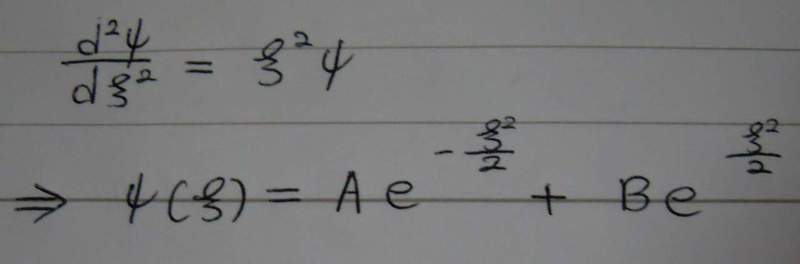 d²ψ/dξ² = ξ²ψ
⇒ ψ(ξ) = Ae^(-ξ²/2) + Be^(ξ²/2)